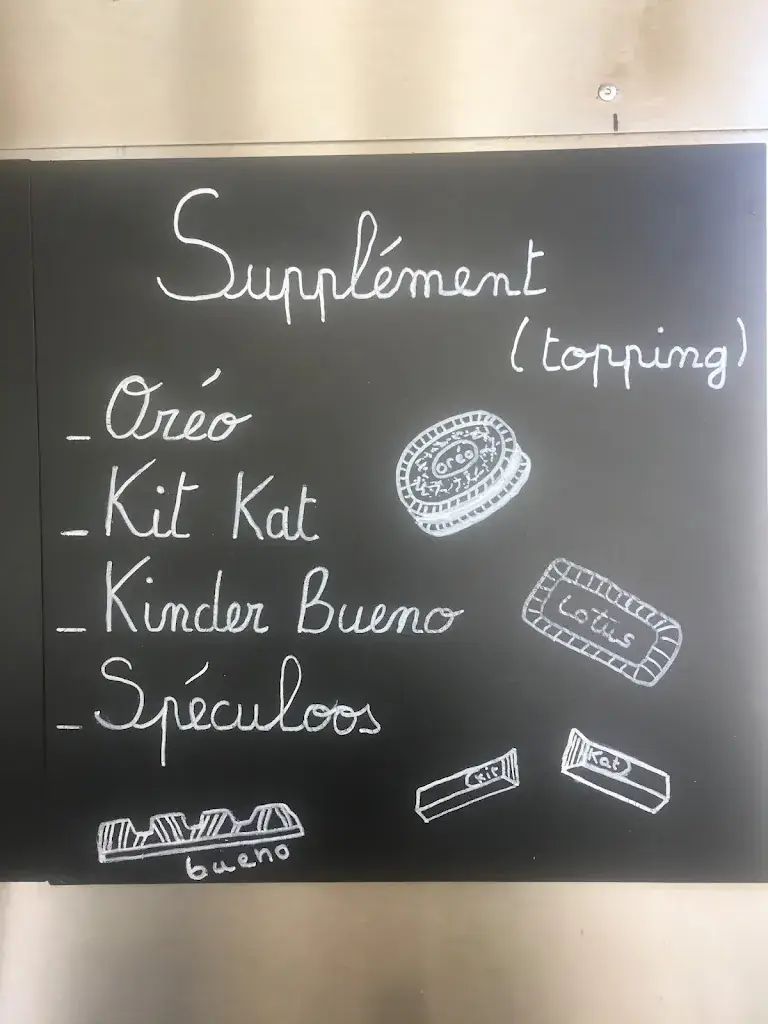 Supplément
(topping)
_ Oréo
_ Kit Kat
_ Kinder Bueno
_ Spéculoos
oréo
Lotus
Kit
Kat
bueno